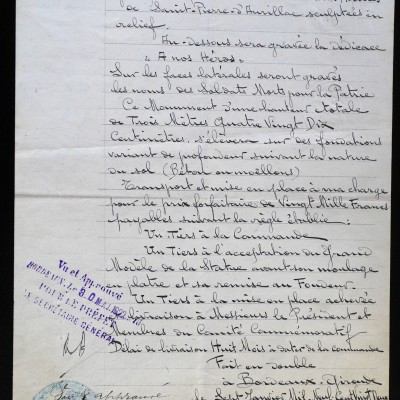 de Saint-Pierre-d'Aurillac sculptées en
relief.
Au-Dessous sera gravée la Dédicace
"A nos Héros"
Sur les faces latérales seront gravés
les noms des Soldats Morts pour la Patrie
Ce Monument d'une hauteur totale
de Trois Mètres Quatre Vingt Dix
Centimètres, s'élèvera sur des fondations
variant de profondeur suivant la nature
du sol (Béton ou moellons)
Transport et mise en place à ma charge
pour le prix forfaitaire de Vingt Mille Francs
payables suivant la règle établie:
Un Tiers à la Commande
Un Tiers à l'acceptation du Grand
Modèle de la Statue avant son moulage
en plâtre et sa remise au Fondeur.
Un Tiers à la mise en place achevée
et livraison à Messieurs le Président et
Membres du Comité Commémoratif
Délai de livraison Huit Mois à dater de la commande
Fait en double
à Bordeaux, Gironde
le Sept Janvier Mil Neuf Cent Vingt
Vu et Approuvé
BORDEAUX, le 8
POUR LE PRÉFET
LE SECRÉTAIRE GÉNÉRAL
approuvé